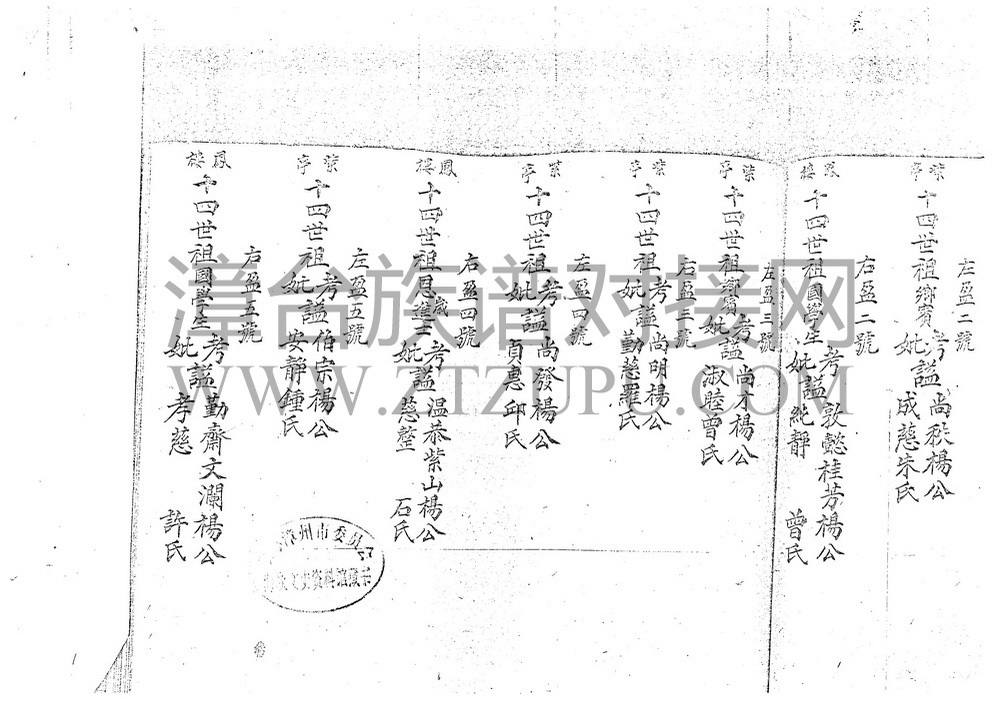 左盈二號
柴亭 十四世祖鄉賓 考謚尚秩楊公
妣謚成慈朱氏
右盈二號
鳳樓 十四世祖國學生 考謚敦懿桂芳楊公
妣謚純靜 曾氏
左盈三號
柴亭 十四世祖鄉賓 考謚尚才楊公
妣謚淑睦曾氏
右盈三號
柴亭 十四世祖 考謚尚明楊公
妣謚勤慈羅氏
左盈四號
柴亭 十四世祖 考謚尚發楊公
妣謚貞惠邱氏
右盈四號
鳳樓 十四世祖恩歲進士 考謚温恭紫山楊公
妣謚慈整 石氏
左盈五號
柴亭 十四世祖 考謚伯宗楊公
妣謚安靜鍾氏
右盈五號
鳳樓 十四世祖國學生 考謚勤齋文瀾楊公
妣謚孝慈 許氏
州市委員
文史資料
漳台族谱对接网
WWW.ZTZUPU.COM